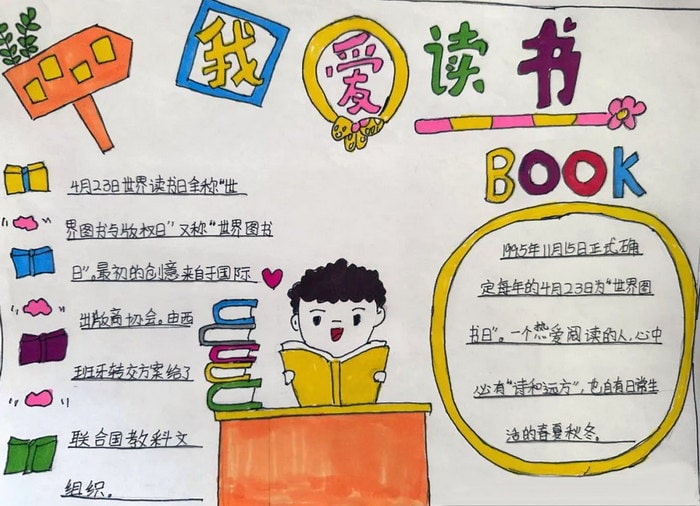 我爱读书
BOOK
4月23日世界读书日全称"世
界图书与版权日"又称"世界图书
日"。最初的创意来自于国际
出版商协会。由西
班牙转交方案给了
联合国教科文
组织。
1995年11月15日正式确
定每年的4月23日为"世界图
书日"。一个热爱阅读的人,心中
必有"诗和远方",也自有日常生
活的春夏秋冬。